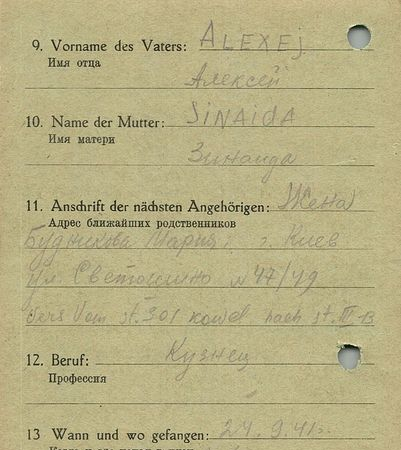 9. Vorname des Vaters: ALEXEJ
Имя отца
Алексей
10. Name der Mutter: SINAIDA
Имя матери
Зинаида
11. Anschrift der nächsten Angehörigen: Жена
Адрес ближайших родственников
Будникова Мария г. Киев
ул. Светошино № 47/49
vers Vom st. 301 kowel nach st. II B
12. Beruf: Кузнец
Профессия
13 Wann und wo gefangen: 24.9.41